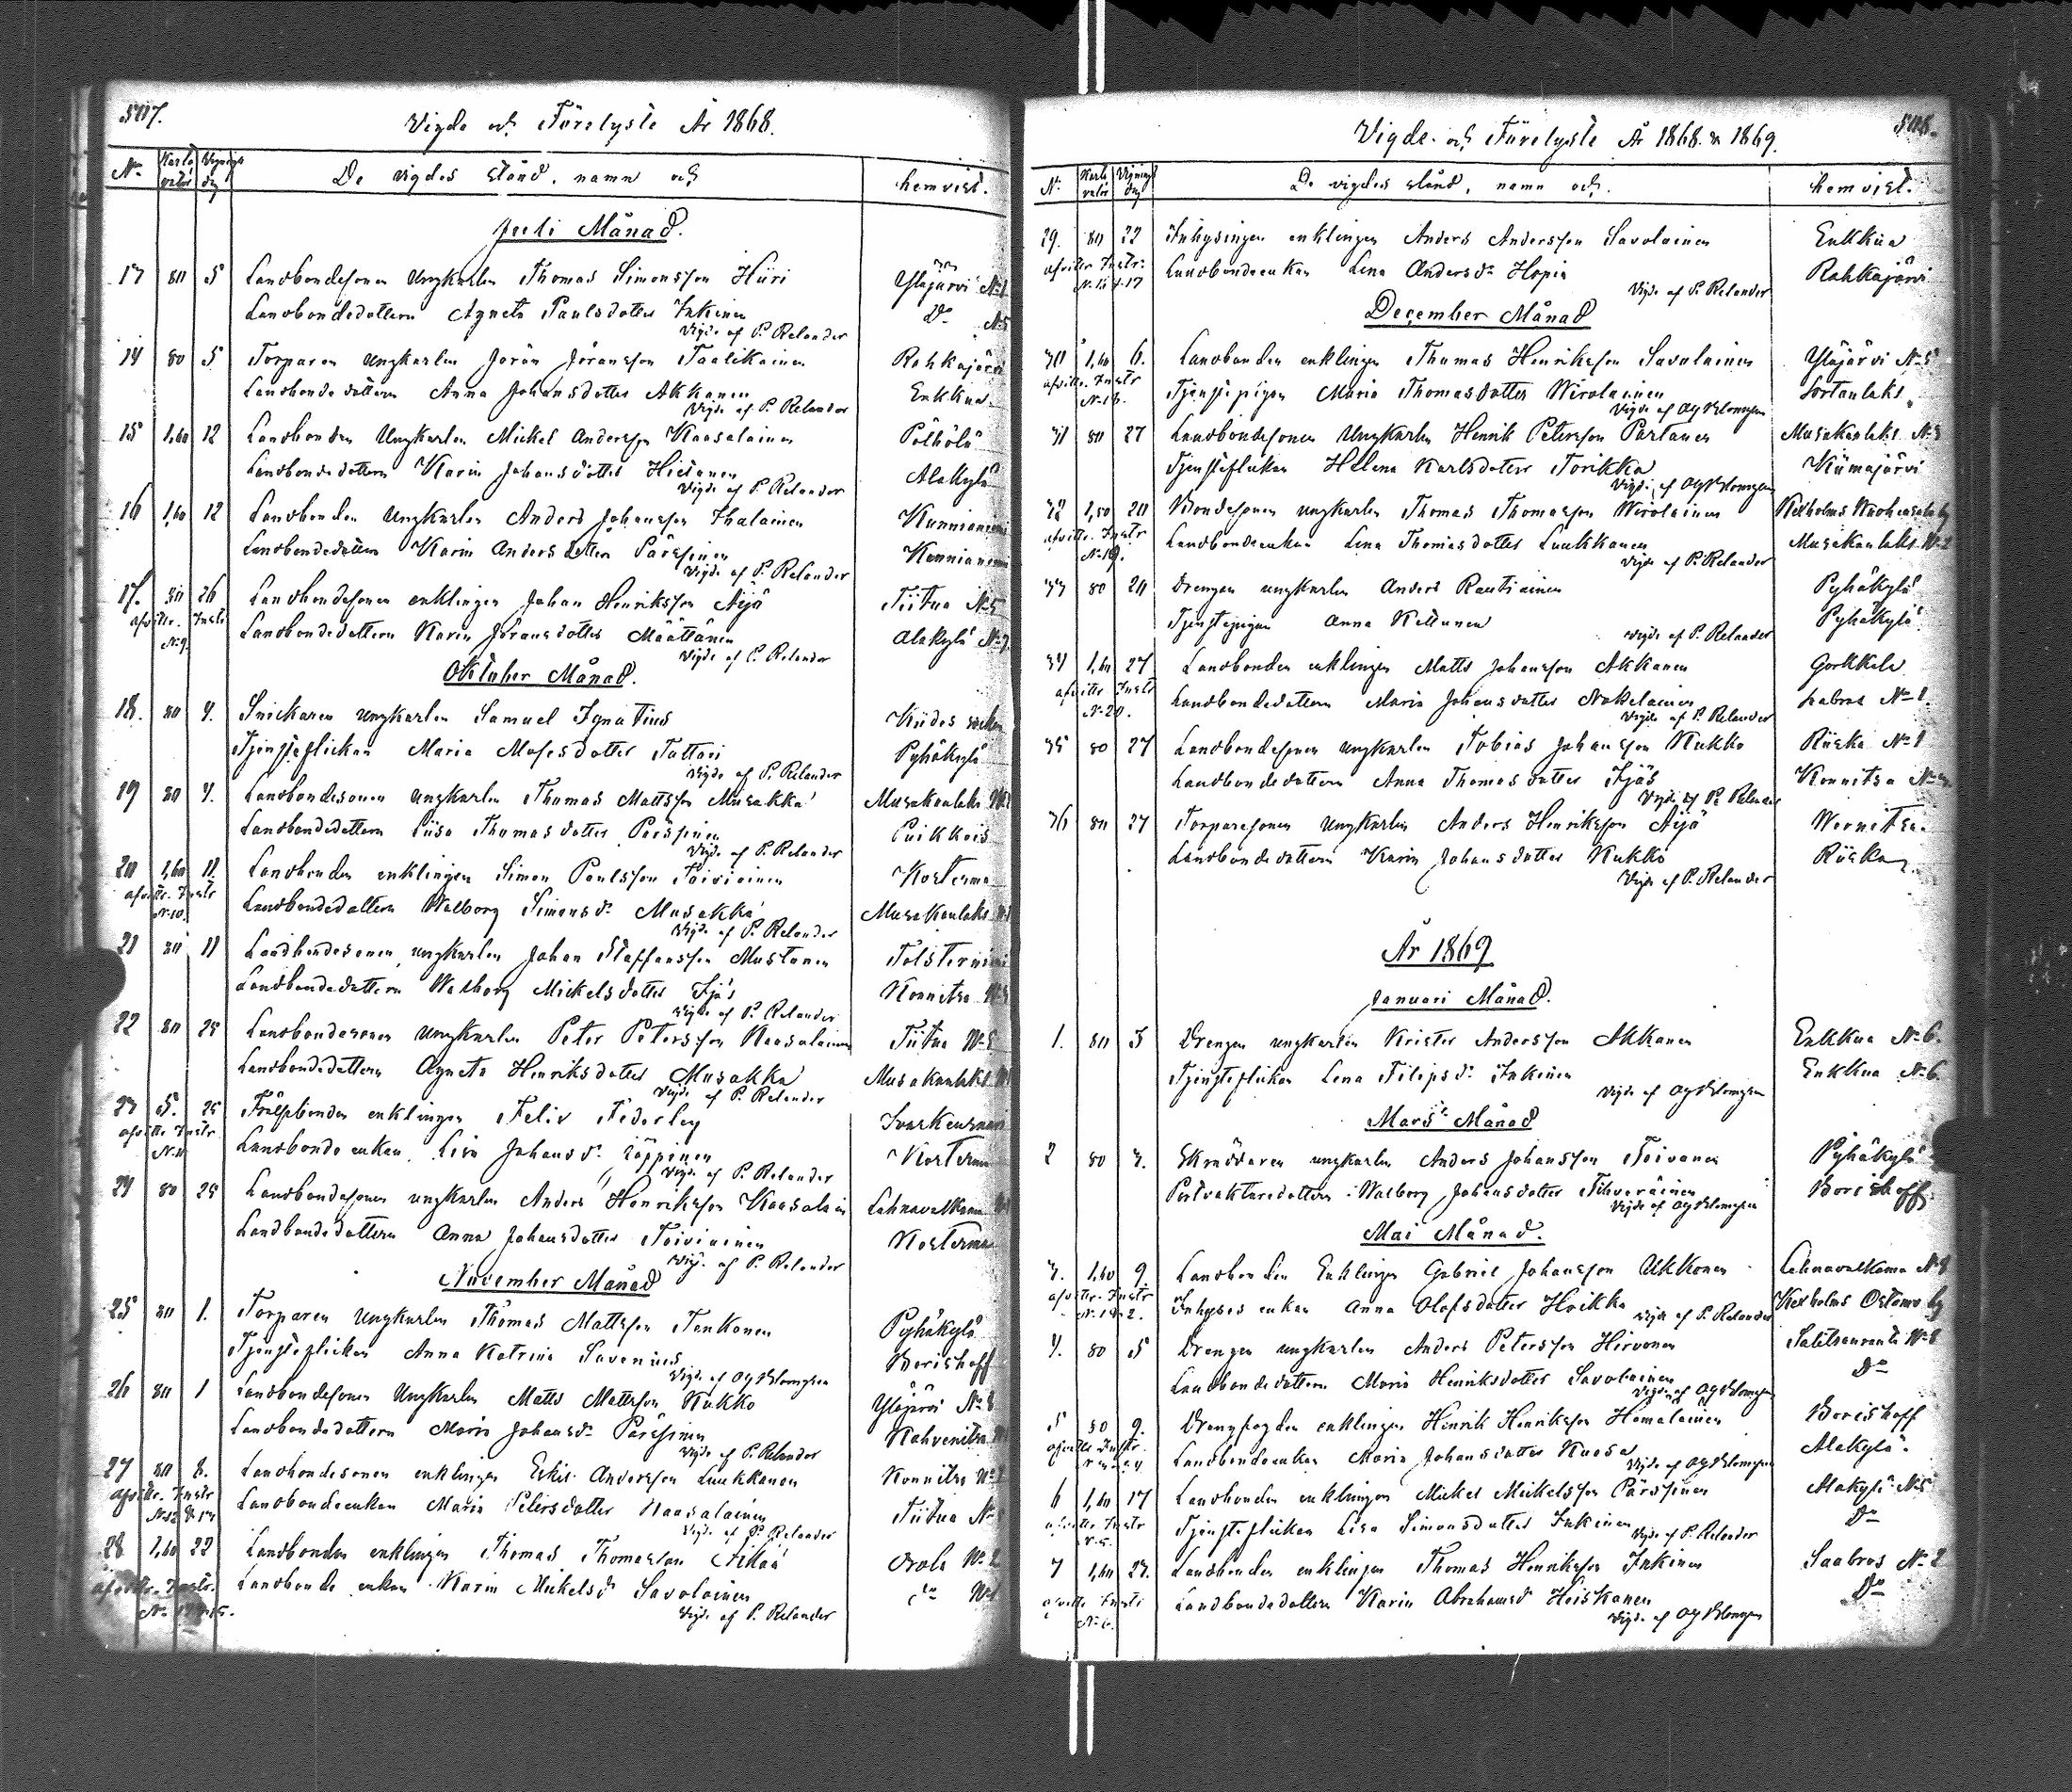 507.
Vigde och Förelyste År 1868.
No Karta vatör Vigningsdag De vigdes stånd, namn och hemvist.
Juli Månad.
13 80 5 Landbondesonen Ungkarlen Thomas Simonsson Hiiri Yläjärvi No 1
Landbondedottern Agneta Paulsdotter Inkinen Do No 5
Vigde af P. Relander
14 80 5 Torparen Ungkarlen Jöran Jöransson Taalikainen Rahkajärvi
Landbondedottern Anna Johansdotter Akkanen Enkkua
Vigde af P. Relander
15 1,60 12 Landbonden Ungkarlen Mickel Andersson Naasalainen Pölhölä
Landbondedottern Karin Johansdotter Hietanen Alakylä
Vigde af P. Relander
16 1,60 12 Landbonden Ungkarlen Anders Johansson Ihalainen Kunnianiemi
Landbondedottern Karin Andersdotter Pärssinen Kunnianiemi
Vigde af P. Relander
17. 80 26 Landbondesonen enklingen Johan Henriksson Äijö Tiitua No 5
afvittr. Instr No 9. Landbondedottern Karin Jöransdotter Määttänen Alakylä No 7.
Vigde af P. Relander
Oktober Månad.
18. 80 4. Snickaren Ungkarlen Samuel Ignatius Kides socken
Tjensteflickan Maria Mosesdotter Tattari Pyhäkylä
Vigde af P. Relander
19 80 4. Landbondesonen ungkarlen Thomas Mattsson Musakka Musakanlaks
Landbondedottern Liisa Thomasdotter Pärssinen Puikkois
Vigde af P. Relander
20 1,60 11. Landbonden enklingen Simon Paulsson Toiviainen Kosterma
afvittr. Instr No 10. Landbondedottern Walborg Simonsdr Musakka Musakanlaks
Vigde af P. Relander
21 80 11 Landbondesonen ungkarlen Johan Staffansson Mustonen Tolsterniemi
Landbondedottern Walborg Mickelsdotter Ijäs Konnitsa
Vigde af P. Relander
22 80 25 Landbondesonen Ungkarlen Peter Petersson Naasalainen Tiitua No 5
Landbondedottern Agneta Henriksdotter Musakka Musakanlaks
Vigde af P. Relander
23 5. 25 enklingen Felix Federley
afvittr. Instr No 11 Landbonde enkan Lisa Johansdr Läppinen Kosterma
Vigde af P. Relander
24 80 25 Landbondesonen ungkarlen Anders Henriksson Naasalain Lahnavalkama
Landbondedottern Anna Johansdotter Toiviainen Kosterma
Vigde af P. Relander
November Månad
25 80 1. Torparen Ungkarlen Thomas Mattsson Tenkanen Pyhäkylä
Tjensteflickan Anna Katrina Savenius Borishoff
Vigde af Og Blomgren
26 80 1 Landbondesonen Ungkarlen Matts Mattsson Kukko Yläjärvi No 8
Landbondedottern Maria Johansdr Pärssinen Kahvenitsa
Vigde af P. Relander
27 80 8. Landbondesonen enklingen Eskil Andersson Luukkanen Konnitsa
afvittr. Instr Landbondeenkan Maria Petersdotter Naasalainen Tiitua No
Vigde af P. Relander
28 1,60 22 Landbonden enklingen Thomas Thomasson Orola No 2
afvittr. Instr. Landbonde enkan Karin Mickelsdr Savolainen
Vigde af P. Relander
508.
Vigde och Förelyste År 1868 & 1869.
No Karta vatör Vignings dag De vigdes stånd, namn och hemvist.
29. 80 22 Inhysingen enklingen Anders Andersson Savolainen Enkkua
afvittr Instr: No 16 & 17 Landbondeenkan Lena Andersdr Hopia Rahkajärvi
Vigde af P. Relander
December Månad
30 1,60 6. Landbonden enklingen Thomas Henriksson Savolainen Yläjärvi No 5
afvittr. Instr No 18. Tjenstepigan Maria Thomasdotter Wirolainen Sortanlaks
Vigde af Og Blomgren
31 80 27 Landbondesonen Ungkarlen Henrik Petersson Partanen Musakanlaks No 3
Tjensteflickan Helena Karlsdotter Torikka Kiimajärvi
Vigde af Og Blomgren
32 1,50 20 Bondesonen ungkarlen Thomas Thomasson Wirolainen Kexholms
afvittr. Instr No 19. Landbondeenkan Lena Thomasdotter Luukkanen Musakanlaks No 2
Vigde af P. Relander
33 80 20 Drengen ungkarlen Anders Rautiainen Pyhäkylä
Tjenstepigan Anna Keltunen Pyhäkylä
Vigde af P. Relander
34 1,60 27 Landbonden enklingen Matts Johansson Akkanen Gorkkala
afvittr Instr No 20. Landbondedottern Maria Johansdotter Nokelainen Saabros No 1.
Vigde af P. Relander
35 80 27 Landbondesonen ungkarlen Tobias Johansson Kukko Riiska No 1
Landbondedottern Anna Thomasdotter Ijäs Konnitsa No
Vigde af P. Relander
36 80 27 Torparesonen Ungkarlen Anders Henriksson Äijö Wernitsa.
Landbondedottern Karin Johansdotter Kukko Riiska
Vigde af P. Relander
År 1869
Januari Månad.
1. 80 3 Drengen ungkarlen Krister Andersson Akkanen Enkkua No 6.
Tjensteflickan Lena Filipsdr Inkinen Enkkua No 6.
Vigde af Og Blomgren
Mars Månad
2 80 7. Skräddaren ungkarlen Anders Johansson Toivanen Pyhäkylä
Walborg Johansdotter Tihveräinen Borishoff
Vigde af Og Blomgren
Mai Månad.
3. 1,60 9. Landbonden Enklingen Gabriel Johansson Ukkonen Lahnavalkama No 8
afvittr. Instr No 1 & 2. Inhyses enkan Anna Olofsdotter Hoikka Kexholms
Vigde af P. Relander
4. 80 5 Drengen ungkarlen Anders Petersson Hirvonen Salitsanranta No 8
Landbondedottern Maria Henriksdotter Savolainen Do
Vigde af Og Blomgren
5 80 9. Drengfogden enklingen Hinrik Henriksson Homalainen Borishoff
afvittr Instr. Landbondeenkan Maria Johansdotter Kuosa Alakylä.
Vigde af Og Blomgren
6 1,60 17 Landbonden enklingen Mickel Mickelsson Pärssinen Alakylä No 5
afvittr Instr No 5. Tjensteflickan Lisa Simonsdotter Inkinen Do
Vigde af P. Relander
7 1,60 23. Landbonden enklingen Thomas Henriksson Inkinen Saabros No 2
afvittr Instr No 6. Landbondedottern Karin Abrahamsd Heiskanen Do
Vigde af Og Blomgren